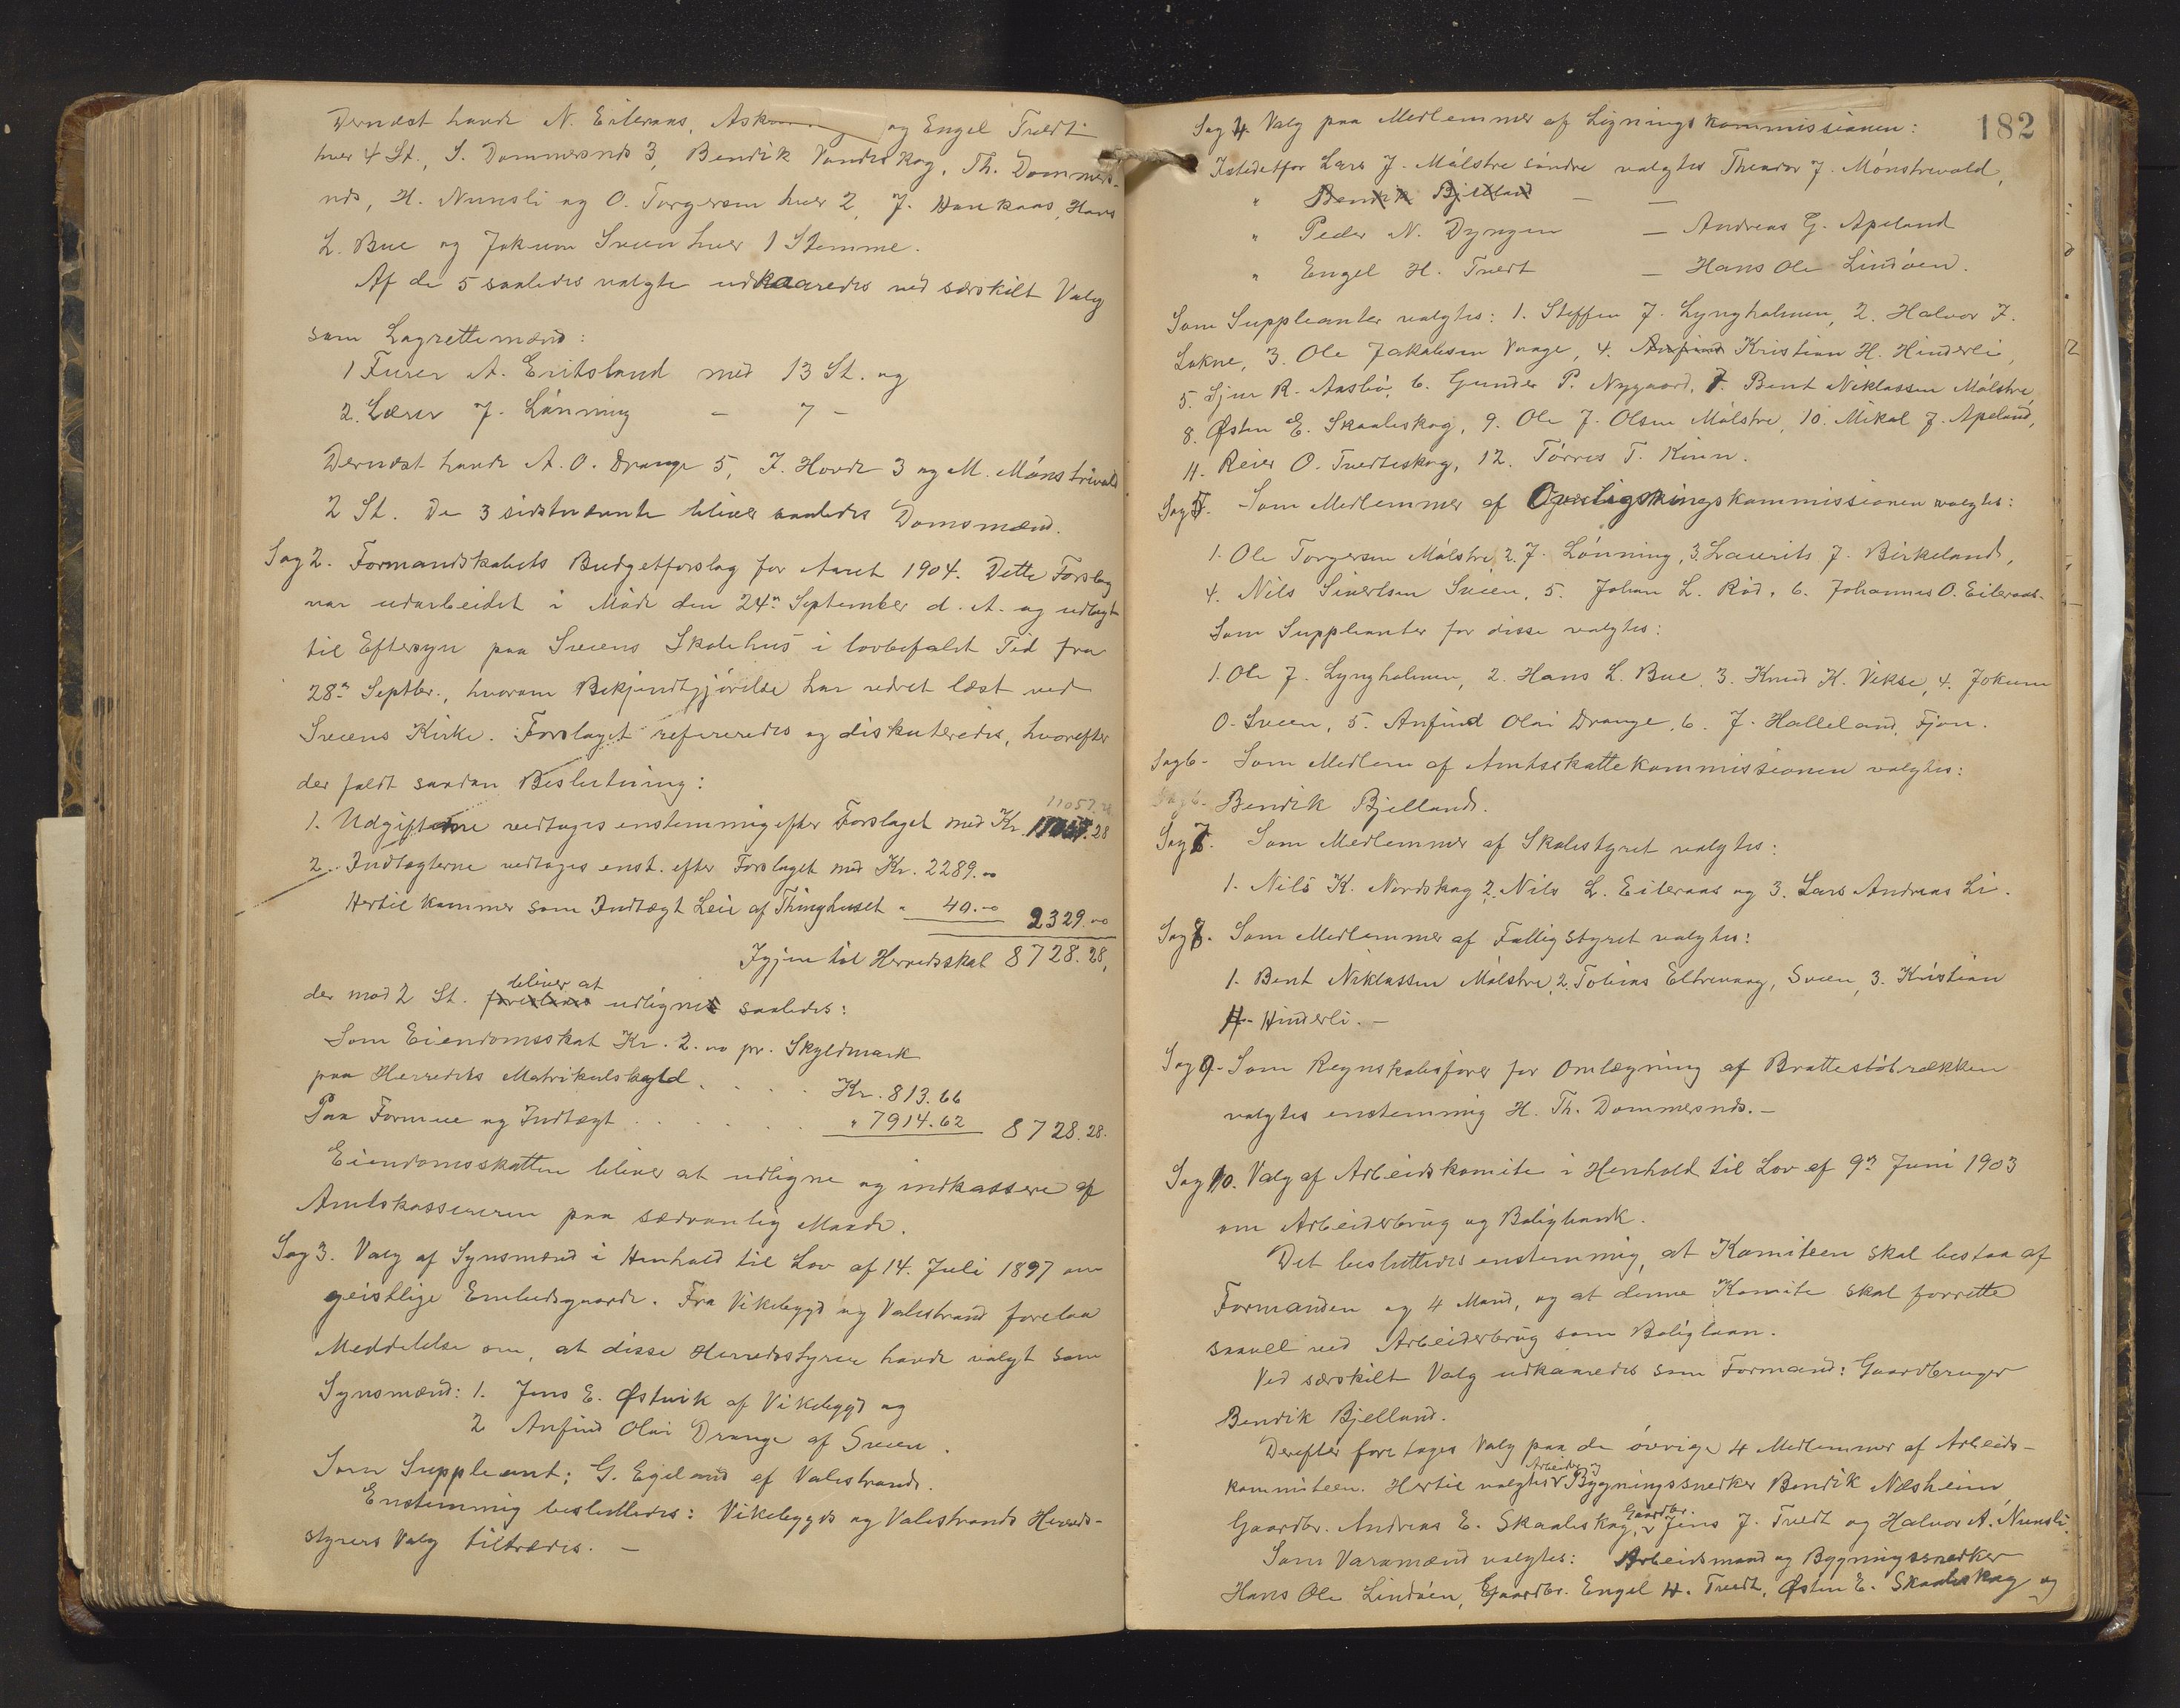 Dernæst havde N. Eileraas, Ask og Engel Tvedt
hver 4 St., S. Dommersnds 3, Bendik Vandskog, Th. Dommers-
nds, H. Nunsli og O. Torgersen hver 2, J. Haukaas, Hans
L. Bue og Jokum Sveen hver 1 Stemme.
Af de 5 saaledes valgte udkaaredes ved særskilt Valg
som Lagrettemænd:
1 Furer A. Eritsland med 13 St. og
2. Lærer J. Lönning - 7 -
Dernæst havde A. O. Drange 5, J. Hovde 3 og M. Mönstrevold
2 St. De 3 sidstnævnte bliver saaledes Domsmænd.
Sag 2. Formandskabets Budgetforslag for Aaret 1904. Dette Forslag
var udarbeidet i Möde den 24n September d. A. og udlagt
til Eftersyn paa Sveens Skolehus i lovbefalet Tid fra
28n Septbr., hvorom Bekjendtgjörelse har været læst ved
Sveens Kirke. Forslaget refereredes og diskuteredes, hvorefter
der faldt saadan Beslutning:
11057.28
1. Udgifterne vedtages enstemmig efter Forslaget med Kr. 11057.28
2. Indtægterne vedtages enst. efter Forslaget med Kr. 2289.00
Hertil kommer som Indtægt Leie af Thinghuset " 40.00 2329.00
Igjen til Herredsskat 8728.28,
bliver at
der mod 2 St. foreslaaes udlignes saaledes:
Som Eiendomsskat Kr. 2.00 pr. Skyldmark
paa Herredets Matrikulskyld . . . . Kr. 813.66
Paa Formue og Indtægt . . . . . . " 7914.62 8728.28.
Eiendomsskatten bliver at udligne og indkassere af
Amtskassereren paa sædvanlig Maade.
Sag 3. Valg af Synsmænd i Henhold til Lov af 14. Juli 1897 om
geistlige Embedsgaarde. Fra Vikebygd og Valestrand forelaa
Meddelelse om, at disse Herredsstyrer havde valgt som
Synsmænd: 1. Jens E. Østvik af Vikebygd og
2 Anfind Olai Drange af Sveen.
Som Suppleant: G. Egeland af Valestrand.
Enstemmig besluttedes: Vikebygds og Valestrands Herreds-
styrers Valg tiltrædes. —
182
Sag 4. Valg paa Medlemmer af Ligningskommissionen:
Istedetfor Lars J. Målstre söndre valgtes Theodor J. Mönstrevold,
" Bendik Bjelland — —
" Peder N. Dyngen — Andreas G. Apeland
" Engel H. Tvedt — Hans Ole Lindöen.
Som Suppleanter valgtes: 1. Steffen J. Lyngholmen, 2. Halvor J.
Lokne, 3. Ole Jakobsen Vaage, 4. Anfind Kristian H. Hinderli,
5. Sjur R. Aasbö, 6. Gunder P. Nygaard, 7. Bent Niklassen Målstre,
8. Østen E. Skaaleskog, 9. Ole J. Olsen Målstre, 10. Mikal J. Apeland,
11. Reier O. Tvedteskog, 12. Törres T. Kinn.
Sag 5. Som Medlemmer af Overligningskommissionen valgtes:
1. Ole Torgersen Målstre, 2. J. Lönning, 3. Laurits J. Birkeland,
4. Nils Sivertsen Sveen, 5. Johan L. Röd, 6. Johannes O. Eileraas.
Som Suppleanter for disse valgtes:
1. Ole J. Lyngholmen, 2. Hans L. Bue, 3. Knud K. Vikse, 4. Jokum
O. Sveen, 5. Anfind Olai Drange, 6. J. Halleland, Fjon.
Sag 6. Som Medlem af Amtsskattekommissionen valgtes:
Sag 6. Bendik Bjelland.
Sag 7. Som Medlemmer af Skolestyret valgtes:
1. Nils K. Nordskog 2. Nils L. Eileraas og 3. Lars Andreas Li.
Sag 8. Som Medlemmer af Fattigstyret valgtes:
1. Bent Niklassen Målstre, 2. Tobias Eltrevaag, Sveen, 3. Kristian
H. Hinderli. —
Sag 9. Som Regnskabsförer for Omlægning af Brattestöbrekken
valgtes enstemmig H. Th. Dommersnds. —
Sag 10. Valg af Arbeidskomite i Henhold til Lov af 9n Juni 1903
om Arbeiderbrug og Boligbank.
Det besluttedes enstemmig, at Komiteen skal bestaa af
Formanden og 4 Mænd, og at denne Komite skal forrette
saavel ved Arbeiderbrug som Boliglaan.
Ved særskilt Valg udkaaredes som Formand: Gaardbruger
Bendik Bjelland.
Derefter foretoges Valg paa de övrige 4 Medlemmer af Arbeids-
Arbeider og
kommiteen. Hertil valgtes Bygningssnedker Bendik Næsheim
Gaardbr.
Gaardbr. Andreas E. Skaaleskog, Jens J. Tvedt og Halvor A. Nunsli.
Som Varamænd valgtes: Arbeidsmand og Bygningssnedker
Hans Ole Lindöen, Gaardbr. Engel H. Tvedt, Østen E. Skaaleskog og